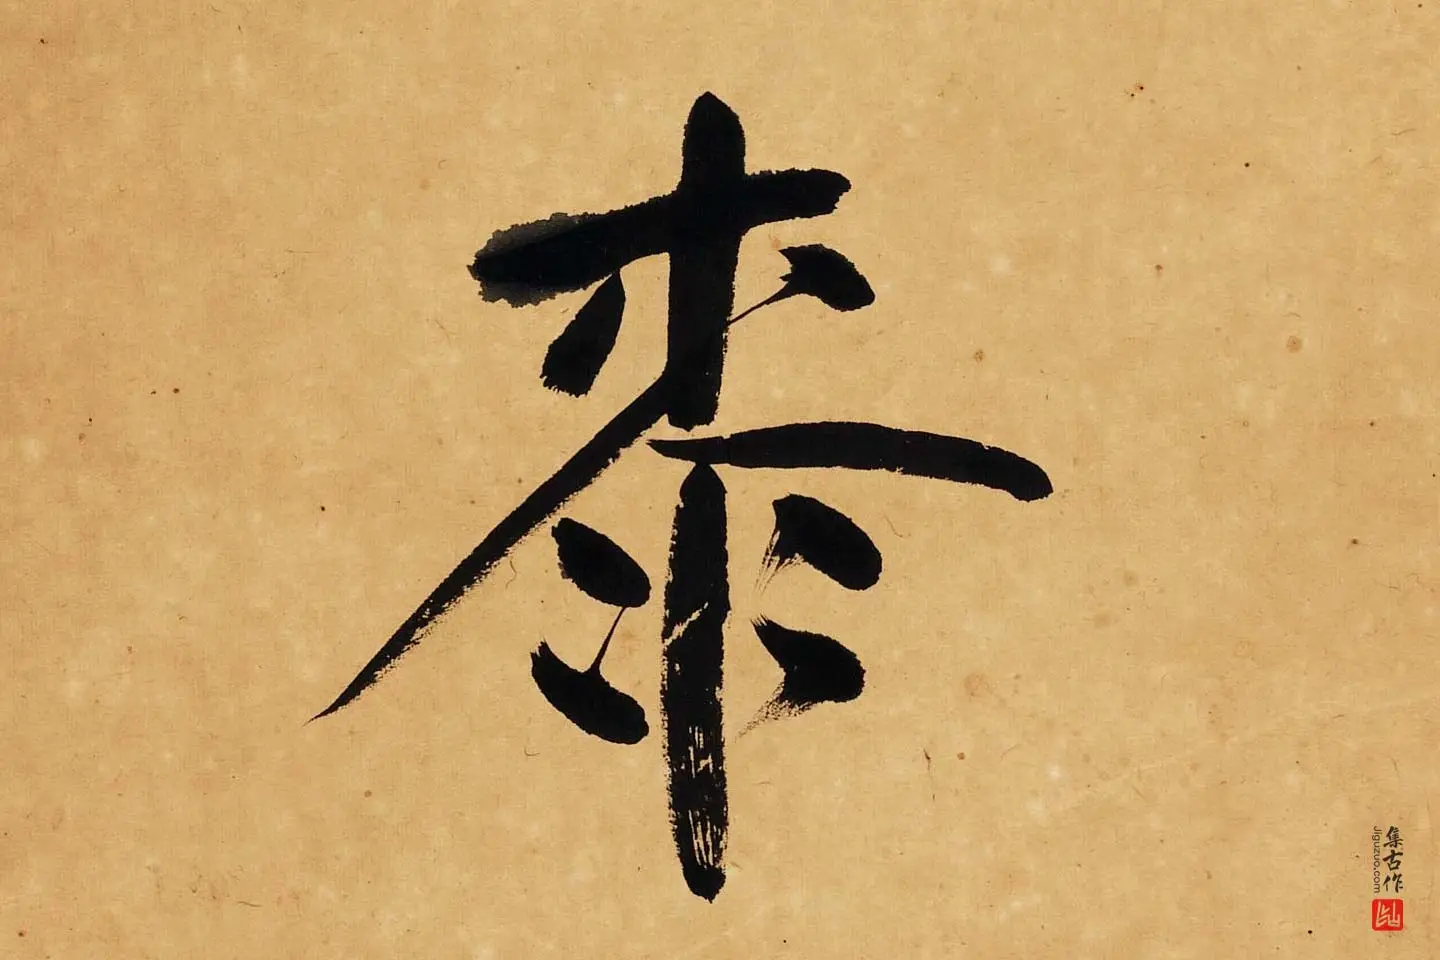 桼
集古作
Jiguzuo.com